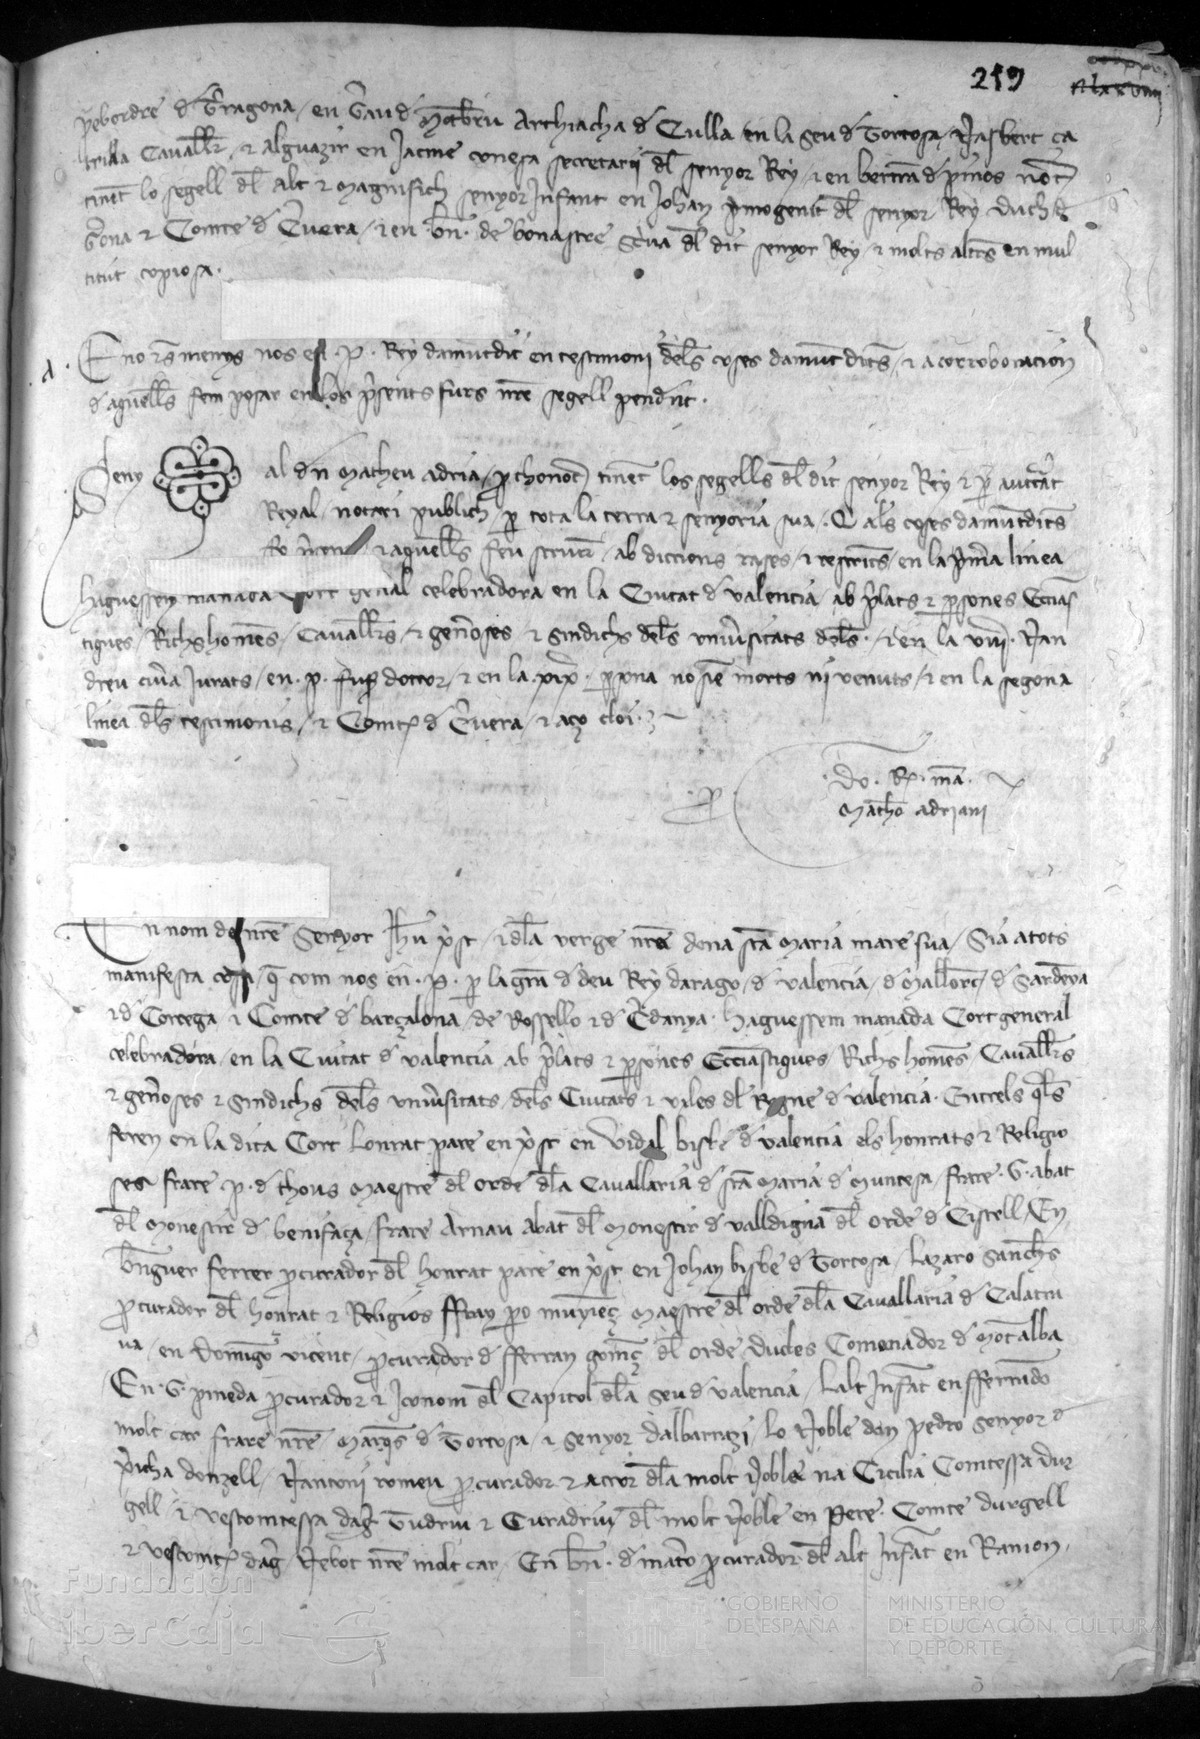 219
p̄ebordre d̄ Tr̄ragona / en Gr̄au d̄ Mōtbru Archiacha d̄ Culla en la Seu d̄ Tortosa / Nasbert ça
trilla Cavall̄r / ⁊ alguazir en Jacme conesa secretari dl̄ senyor Rey / ⁊ en bertrā d̄ pinos not̄
tinēt lo segell dl̄ alt ⁊ magnifich senyor Infant en Johan p̄mogenit dl̄ senyor Rey Duch d̄
Gr̄ona ⁊ Comte d̄ Cr̄vera / ⁊ en . bn̄ . de bonastre scr̄iva dl̄ dit senyor Rey / ⁊ molts altr̄s en mul
titut copiosa .
E no rēs menys nos en . P . Rey damūtdit en testimoni del̄s coses damūt dit̄s / ⁊ a corroboracion
d̄ aquell̄s fem posar en los p̄sents furs nr̄e segell pendēt .
Seny
al d̄n Matheu adria / p̄thonot̄ tinēt los segells dl̄ dit senyor Rey ⁊ p̄ auct̄at
Reyal notari publich p̄ tota la terra ⁊ senyoria sua . Q als coses damūtdit̄s
⁊ aquell̄s feu scriur̄ / ab diccions rases / ⁊ rescrit̄s / en la p̄mera linea
haguessem manada Cort gn̄al celebradora en la Ciutat d̄ valencia ab p̄lats ⁊ p̄sones Ecc̄ias
tiques / Richs homēs / Cavall̄rs / ⁊ gen̄oses ⁊ Sindichs del̄s univ̄sitats del̄s . / ⁊ en la viii . Nan
dreu / Jurats / en . p . doctor / ⁊ en la . xix . p̄sona no siē morts ni venuts / ⁊ en la segona
linea dl̄s testimonis / ⁊ Comte d̄ Cr̄vera / ⁊ aço cloi .
. Do . Rx̄ . mā .
p̄ Mathō adriani
En nom de nr̄e Senyor Jhū xp̄st / ⁊ dl̄a verge nr̄a dona sc̄a Maria mare sua / Sia a tots
manifesta cosa / q̄ com nos en . P . p̄ la gr̄a d̄ deu Rey darago / d̄ valencia / d̄ Mallorq̄ / d̄ Sardēya
⁊ d̄ Corcega ⁊ Comte d̄ barçalona / de Rossello ⁊ d̄ Cr̄danya . haguessem manada Cort general
celebradora / en la Ciutat d̄ valencia ab p̄lats ⁊ p̄sones Ecc̄iastiques / Richs homēs / Cavall̄rs
⁊ gen̄oses ⁊ Sindichs del̄s univ̄sitats / del̄s Ciutats ⁊ viles dl̄ Regne d̄ valencia . Entrels ql̄s
foren en la dita Cort Lonrat pare en xp̄st en Vidal bisbe d̄ valencia els honrats ⁊ Religio
ses frare . p . d̄ thous Maestre dl̄ orde dl̄a Cavallaria d̄ sc̄a Maria d̄ Muntesa / frare . G . abat
dl̄ Monestir d̄ benifaça / frare Arnau Abat dl̄ Monestir d̄ valldigna dl̄ orde d̄ Cistell / En
bn̄guer ferrer p̄curador dl̄ honrat pare en xp̄st en Johan bisbe d̄ Tortosa / Lazaro Sanchēs
p̄curador dl̄ honrat ⁊ Religios ffray p̄o muyneç Maestre dl̄ orde dl̄a Cavallaria d̄ Calatra
va / en Domīgo vicent / p̄curador d̄ fferran gomēç dl̄ orde Ducles Comenador d̄ Mōtalba
En . G . pineda p̄curador ⁊ Iconom dl̄ Capitol dl̄a Seu d̄ valencia / Lalt Infāt en fferrādo
molt car frare nr̄e / Marq̄s d̄ Tortosa / ⁊ Senyor d'albarrazi / lo Noble don pedro senyor d̄
xicha donzell / Nantoni romeu p̄curador ⁊ actor dl̄a molt noble na Cicilia Comtessa dur
gell ⁊ vescomtessa daḡr Tudriu ⁊ Curadriu dl̄ molt noble en Pere Comte durgell
⁊ vescomte daḡr / Nebot nr̄e molt car / En bn̄ . d̄ p̄curador dl̄ alt Infāt en Ramon
Fundación
iberCaja
GOBIERNO
DE ESPAÑA
MINISTERIO
DE EDUCACIÓN, CULTURA
Y DEPORTE